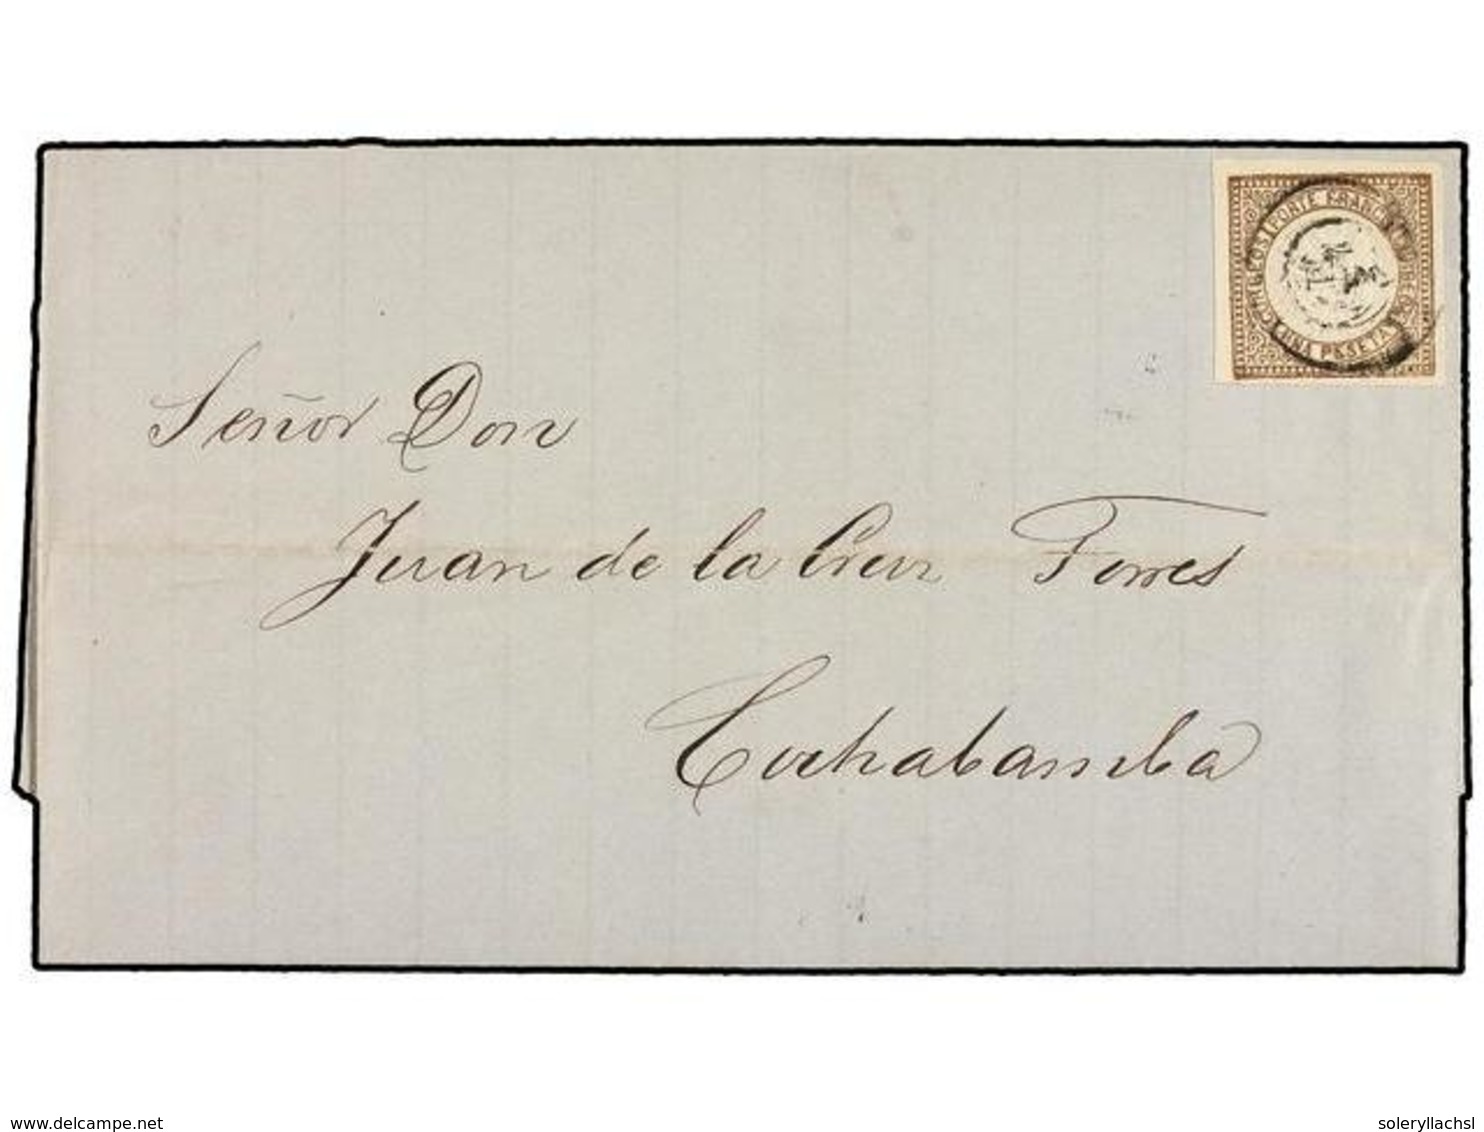 PORTE FRANCO
CORREOS
UNA PESETA
Señor Don
Juan de la Cruz Torres
Cochabamba
www.delcampe.net
soleryllachsl